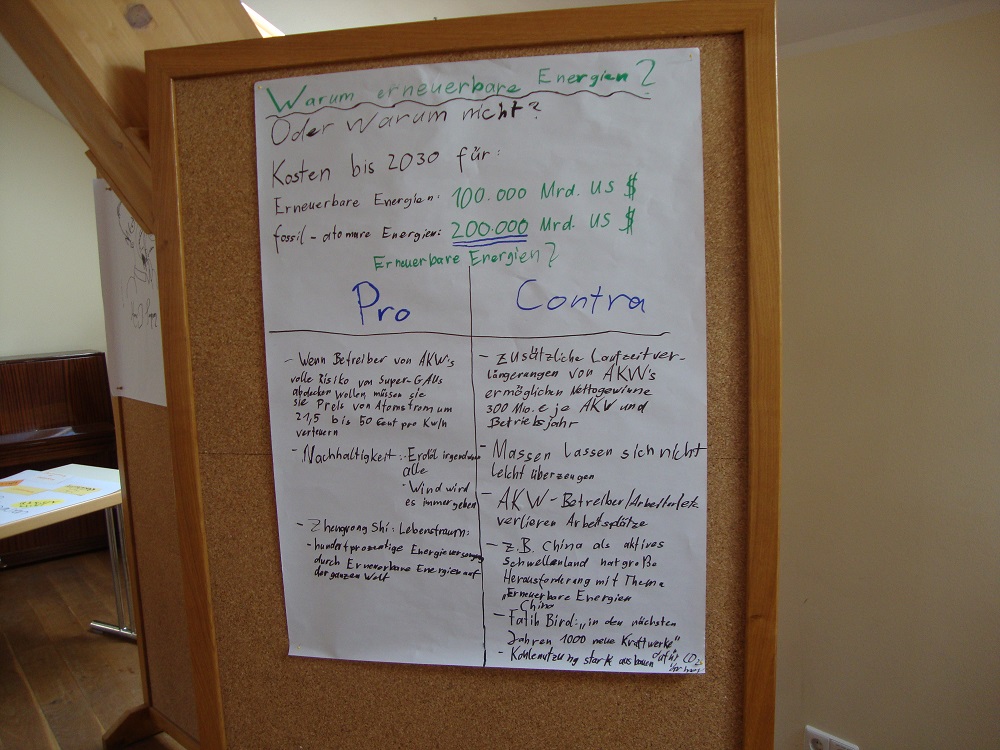 Warum erneuerbare Energien?
Oder warum nicht?
Kosten bis 2030 für:
Erneuerbare Energien: 100.000 Mrd. US $
fossil-atomare Energien: 200.000 Mrd. US $
Erneuerbare Energien?
Pro
- Wenn Betreiber von AKW's
volle Risiko von Super-GAUs
abdecken wollen, müssen sie
sie Preis von Atomstrom um
21,5 bis 50 Cent pro Kw/h
verteuern
- Nachhaltigkeit: Erdöl irgendwann
alle
- Wind wird
es immer geben
- Zhengrong Shi: Lebenstraum:
- hundertprozentige Energieversorgung
durch Erneuerbare Energien auf
der ganzen Welt
Contra
- Zusätzliche Laufzeitver-
längerungen von AKW's
ermöglichen Nettogewinne
300 Mio. € je AKW und
Betriebsjahr
- Massen lassen sich nicht
leicht überzeugen
- AKW-Betreiber/Arbeiter
verlieren Arbeitsplätze
- Z.B. China als aktives
Schwellenland hat große
Herausforderung mit Thema
"Erneuerbare Energien
China
- Fatih Birol: "in den nächsten
Jahren 1000 neue Kraftwerke"
- Kohlenutzung stark ausbauen dafür CO2